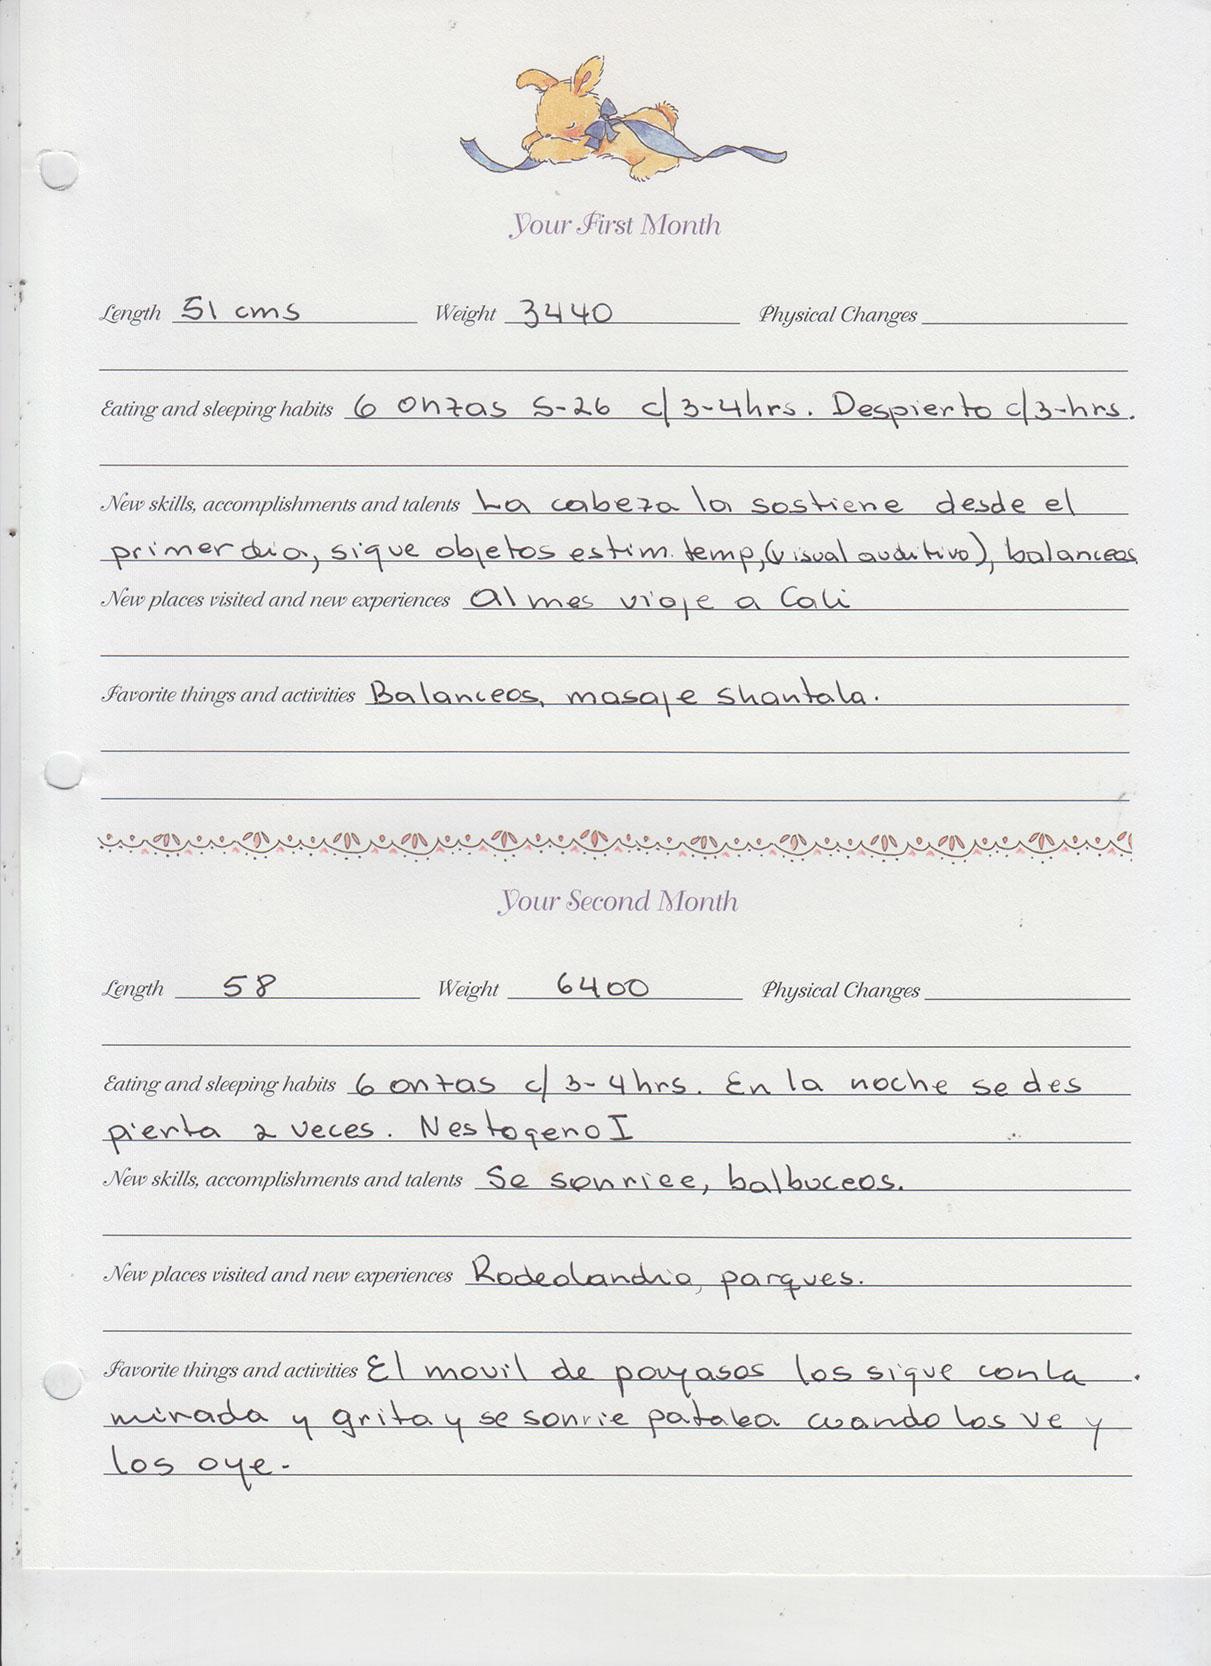 Your First Month
Length 51 cms Weight 3440 Physical Changes
Eating and sleeping habits 6 onzas S-26 c/3-4hrs. Despierto c/3-hrs.
New skills, accomplishments and talents La cabeza la sostiene desde el
primer dia, sigue objetos estim. temp, (visual auditivo), balanceos
New places visited and new experiences Al mes viaje a Cali
Favorite things and activities Balanceos, masaje shantala.
Your Second Month
Length 58 Weight 6400 Physical Changes
Eating and sleeping habits 6 onzas c/3-4hrs. En la noche se des
pierta 2 veces. Nestogeno I
New skills, accomplishments and talents Se sonriee, balbuceos.
New places visited and new experiences Rodeolandia, parques.
Favorite things and activities El movil de payasos los sigue con la
mirada y grita y se sonrie patalea cuando los ve y
los oye.